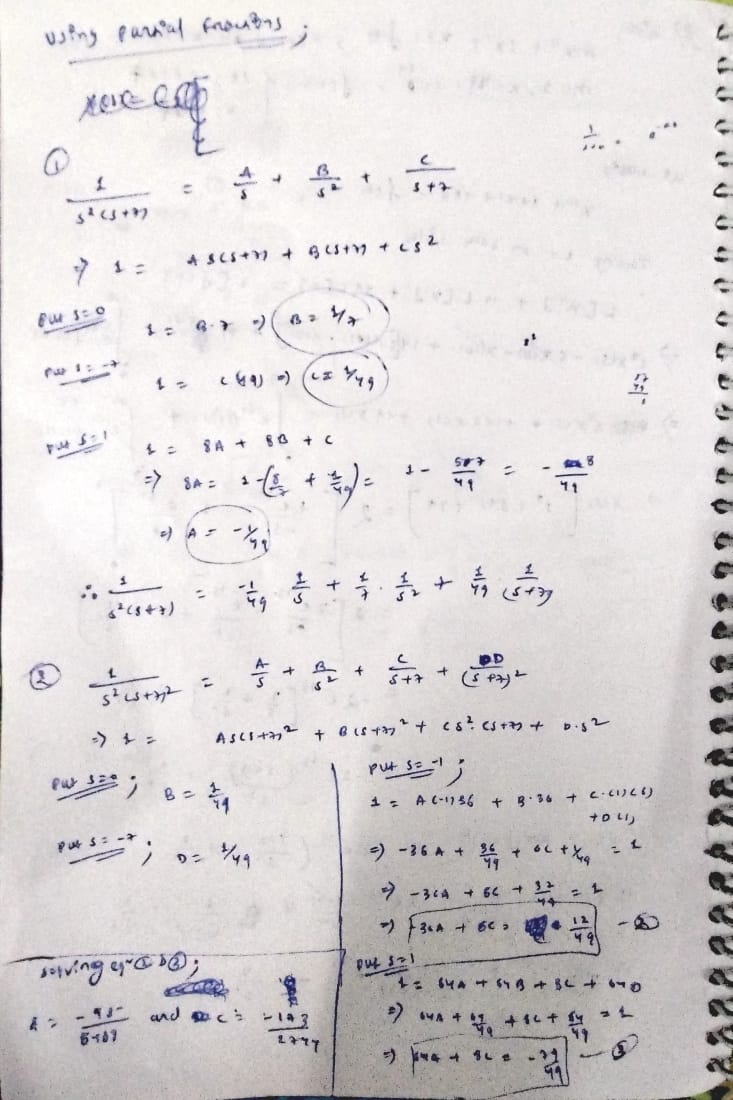 using partial fractions ;
①
1/(s²(s+7)) = A/s + B/s² + C/(s+7)
⇒ 1 = A s(s+7) + B(s+7) + cs²
put s=0 1 = B·7 ⇒ B = 1/7
put s=-7 1 = c(49) ⇒ c = 1/49
put s=1 1 = 8A + 8B + c
⇒ 8A = 1-(8/7 + 1/49) = 1 - 57/49 = -8/49
⇒ A = -1/49
∴ 1/(s²(s+7)) = -1/49 · 1/s + 1/7 · 1/s² + 1/49 · 1/(s+7)
② 1/(s²(s+7)²) = A/s + B/s² + C/(s+7) + D/(s+7)²
⇒ 1 = As(s+7)² + B(s+7)² + cs²·(s+7) + D·s²
put s=0 ; B = 1/49
put s=-7 ; D = 1/49
put s=-1 ;
1 = A(-1)36 + B·36 + c·(1)(6)
+ D(1)
⇒ -36A + 36/49 + 6c + 1/49 = 1
⇒ -36A + 6c + 37/49 = 1
⇒ -36A + 6c = 12/49
put s=1
1 = 64A + 64B + 8c + 64D
⇒ 64A + 64/49 + 8c + 64/49 = 1
⇒ 64A + 8c = -79/49 - ③
solving eq ② & ③ ;
and c =